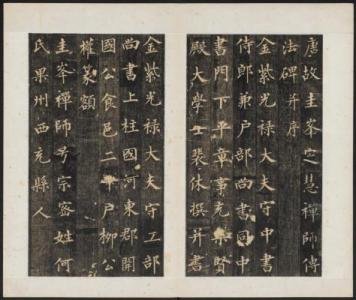 唐故圭峯定慧禪師傳
法碑并序
金紫光祿大夫守中書
侍郎兼戶部尚書同中
書門下平章事充集賢
殿大學士裴休撰并書
金紫光祿大夫守工部
尚書上柱國河東郡開
國公食邑二千戶柳公
權篆額
圭峯禪師号宗密姓何
氏果州西充縣人